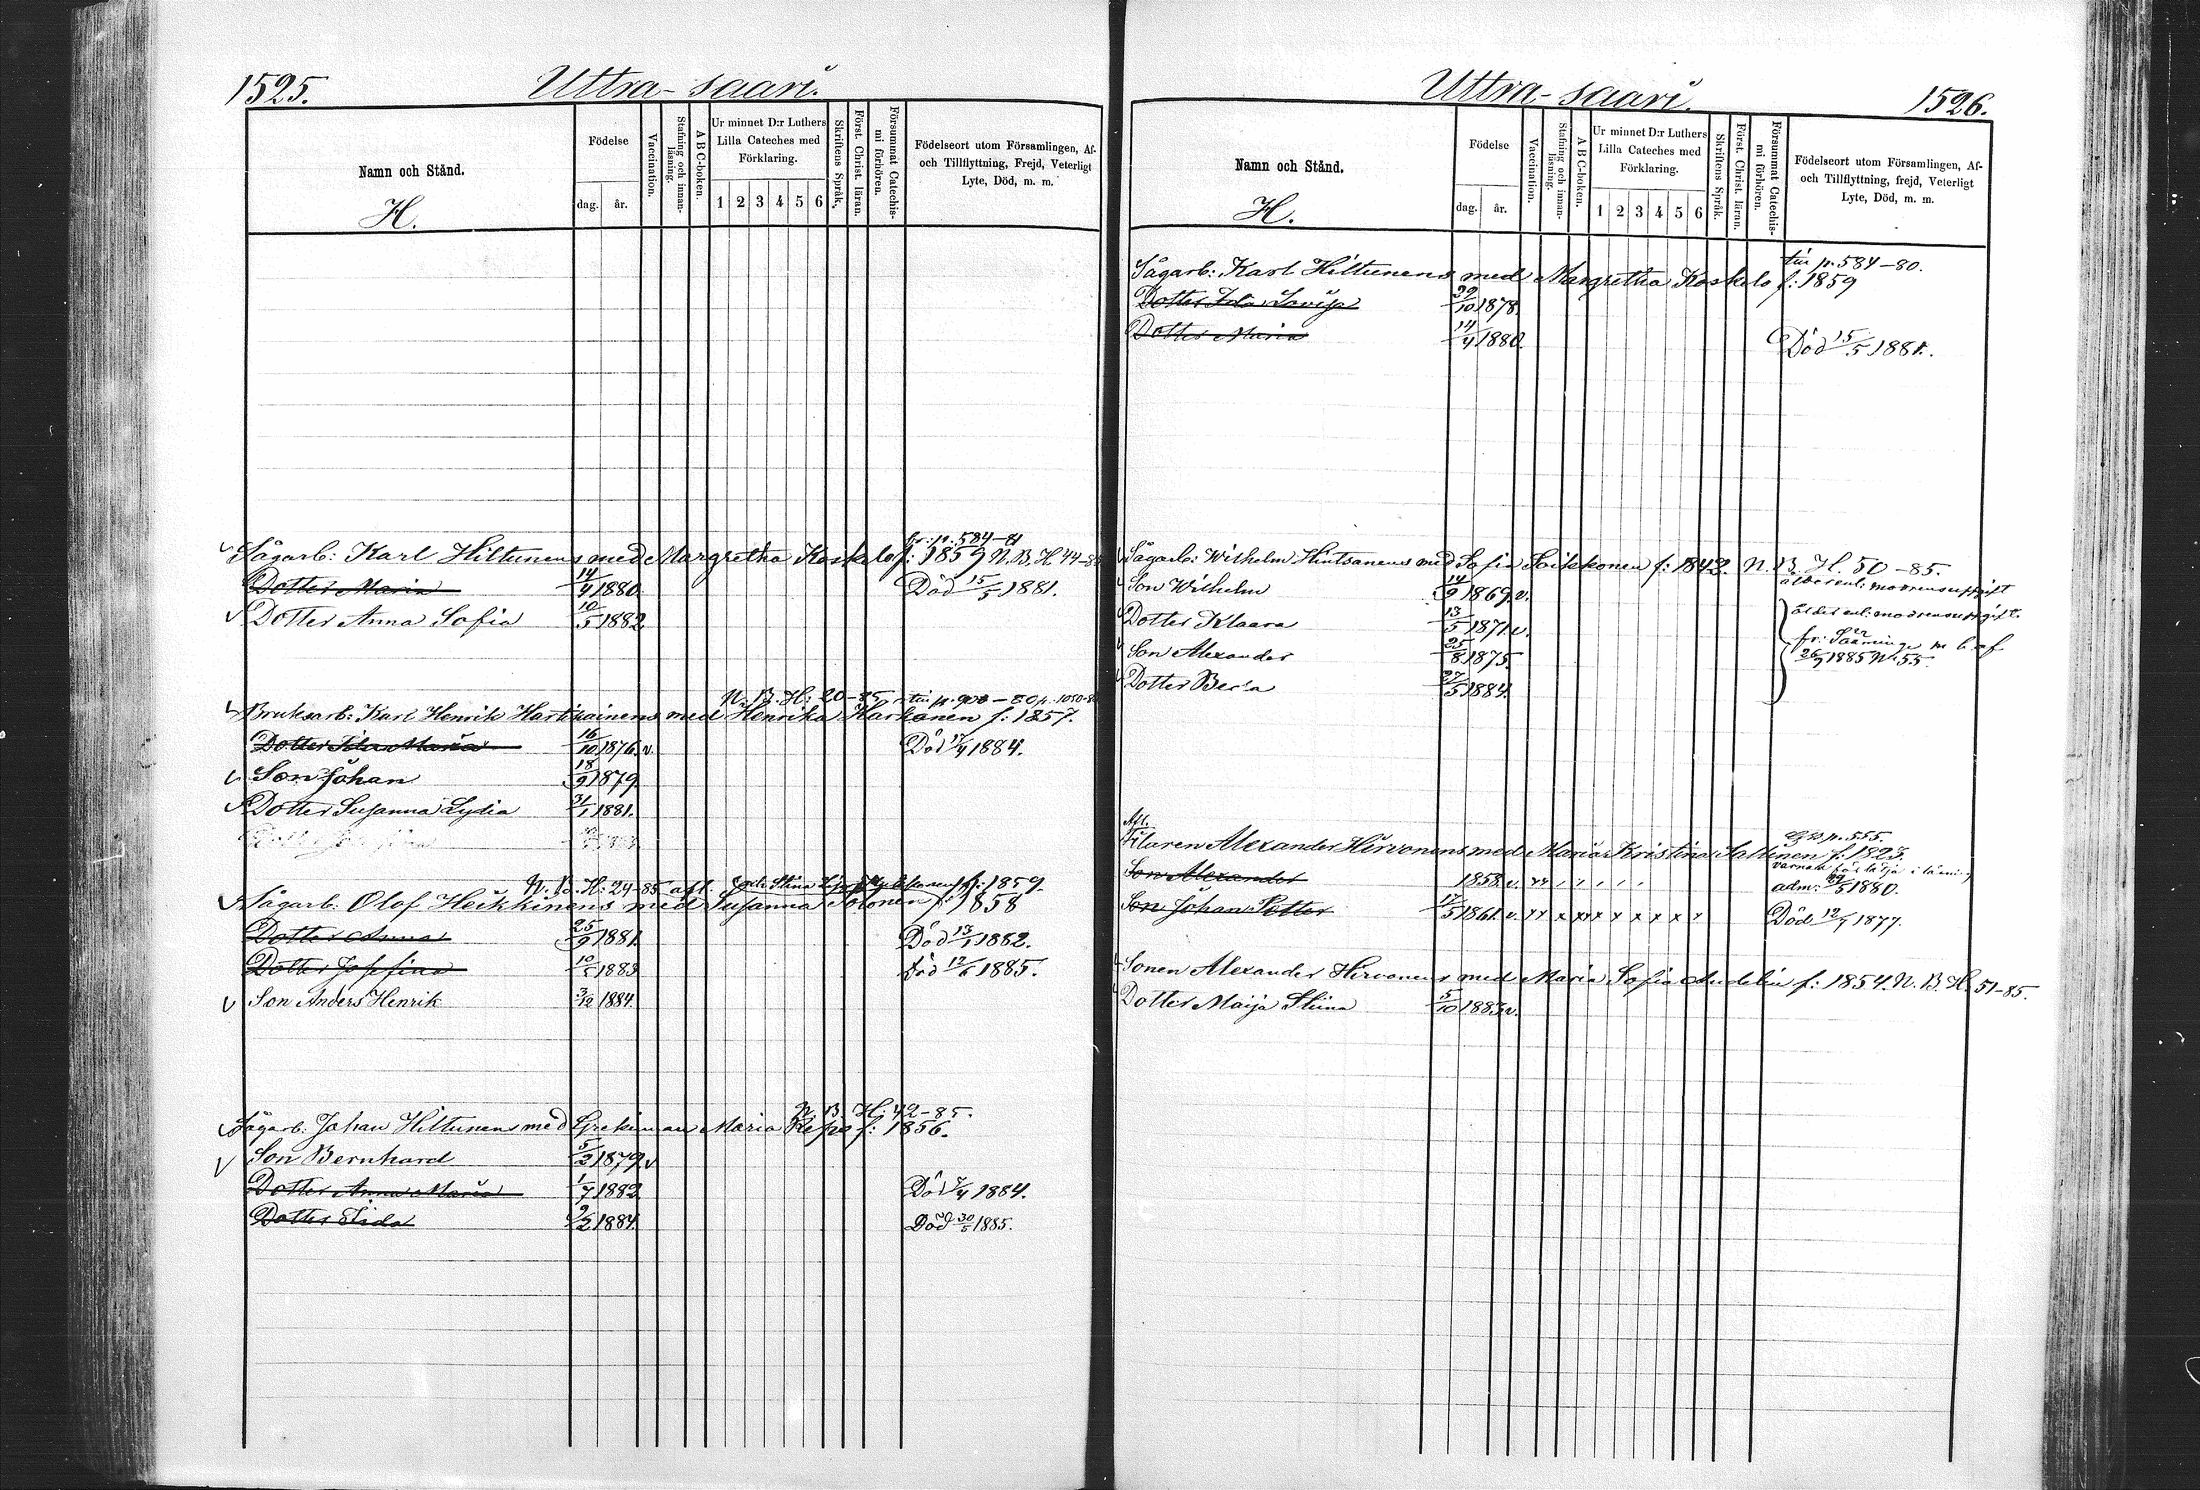 1525.
Uttra-saari.
Namn och Stånd.
H.
Födelse
dag. år.
Vaccination.
Stafning och innan-läsning.
A B C-boken.
Ur minnet D:r Luthers
Lilla Cateches med
Förklaring.
1 2 3 4 5 6
Skriftens Språk.
Först. Christ. läran.
Försummat Catechis-mi förhören.
Födelseort utom Församlingen, Af-
och Tillflyttning, Frejd, Veterligt
Lyte, Död, m. m.
fr: p. 584-81
Sågarb: Karl Hiltunens med Margretha Koskelo f: 1859 N.B. H. 44-85
Dotter Maria 14/4 1880. Död 15/5 1881.
Dotter Anna Sofia 10/5 1882
N. B. H: 20-85
Bruksarb: Karl Henrik Hartikainens med Henrika Karhanen f: 1857.
Dotter Ida Maria 16/10 1876. v. Död 17/4 1884.
Son Johan 18/9 1879.
Dotter Susanna Lydia 31/1 1881.
N. B. H: 24-85 afl. f: 1859
Sågarb. Olof Heikkinens med Susanna f: 1858
Dotter Anna 25/9 1881. Död 13/1 1882.
Dotter Josefina 10/5 1883 Död 12/6 1885.
Son Anders Henrik 3/12 1884.
N. B. H: 42-85.
Sågarb: Johan Hiltunens med Grekinnan Maria Repo f: 1856.
Son Bernhard 5/2 1879 v
Dotter Anna Maria 1/7 1882. Död 7/4 1884.
Dotter Iida 9/2 1884. Död 30/5 1885.
Uttra-saari.
1526.
Namn och Stånd.
H.
Födelse
dag. år.
Vaccination.
Stafning och innan-läsning.
A B C-boken.
Ur minnet D:r Luthers
Lilla Cateches med
Förklaring.
1 2 3 4 5 6
Skriftens Språk.
Först. Christ. läran.
Försummat Catechis-mi förhören.
Födelseort utom Församlingen, Af-
och Tillflyttning, frejd, Veterligt
Lyte, Död, m. m.
p. 584-80.
Sågarb: Karl Hiltunens med Margretha Koskelo f: 1859
Dotter Ida Lovisa 29/10 1878.
Dotter Maria 14/4 1880. Död 15/5 1881.
Sågarb: Wilhelm Hintsanens med Sofia Loikkonen f: 1842. N. B. H. 50-85.
Son Wilhelm 14/9 1869. v. ålder enl: modrens uppgift
Dotter Klaara 13/5 1871. v. ålder enl: modrens uppgift.
Son Alexander 25/8 1875 fr: Sääminge m b af
26/9 1885 N: 55.
Dotter Berta 27/5 1884.
Afl.
Filaren Alexander Hirvonens med Maria Kristina f. 1823.
p. 555.
Son Alexander 1858. v. adm: 1880.
Son Johan Petter 17/5 1861. v. Död 12/7 1877.
Sonen Alexander Hirvonens med Maria Sofia Audelin f: 1854. N. B. H. 51-85.
Dotter Maija Stiina 5/10 1883 v.